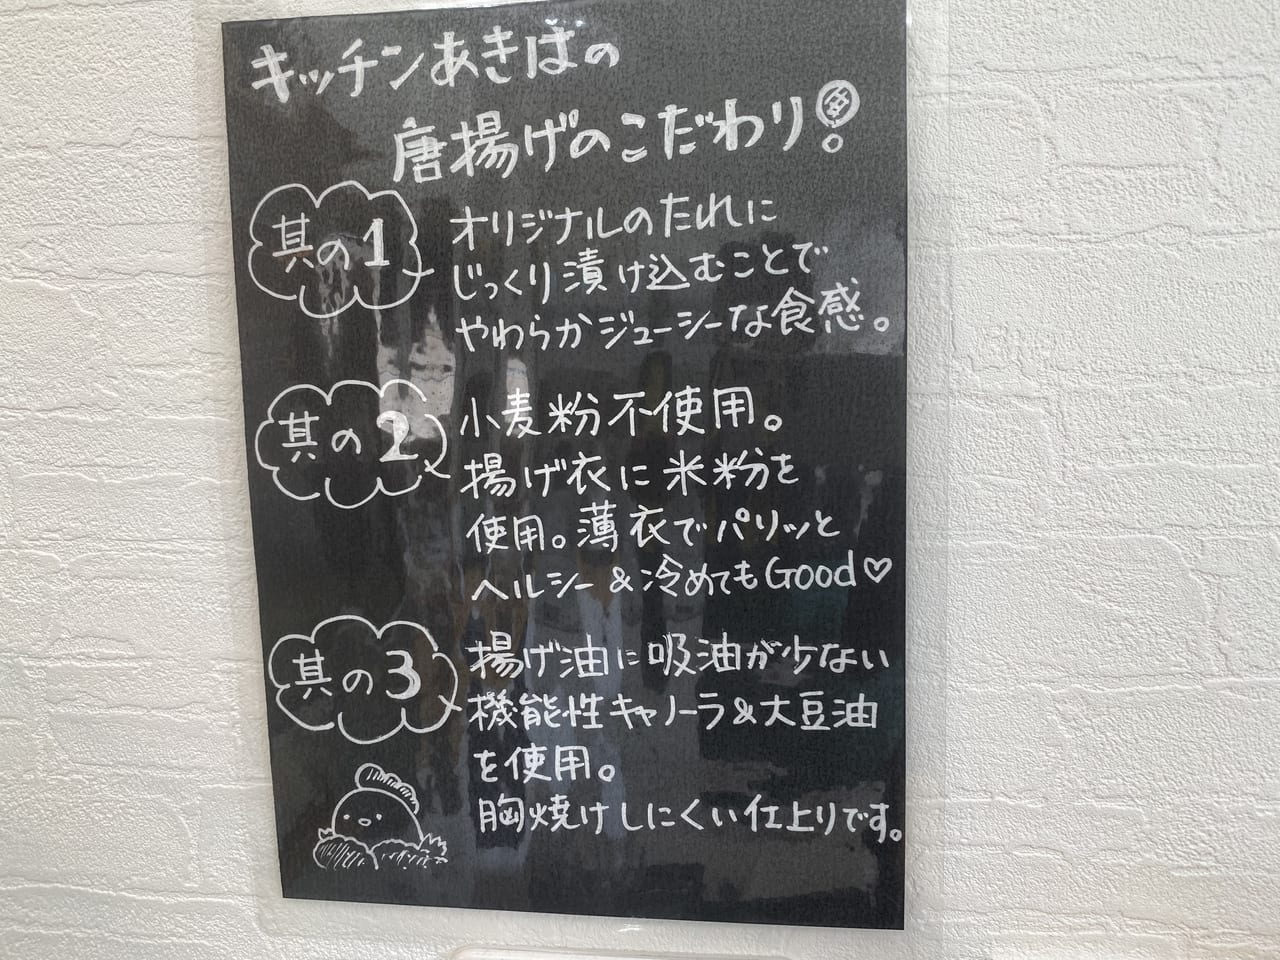 キッチンあきばの
唐揚げのこだわり!
其の1
オリジナルのたれに
じっくり漬け込むことで
やわらかジューシーな食感。
其の2
小麦粉不使用。
揚げ衣に米粉を
使用。薄衣でパリッと
ヘルシー&冷めてもGood♡
其の3
揚げ油に吸油が少ない
機能性キャノーラ&大豆油
を使用。
胸焼けしにくい仕上りです。